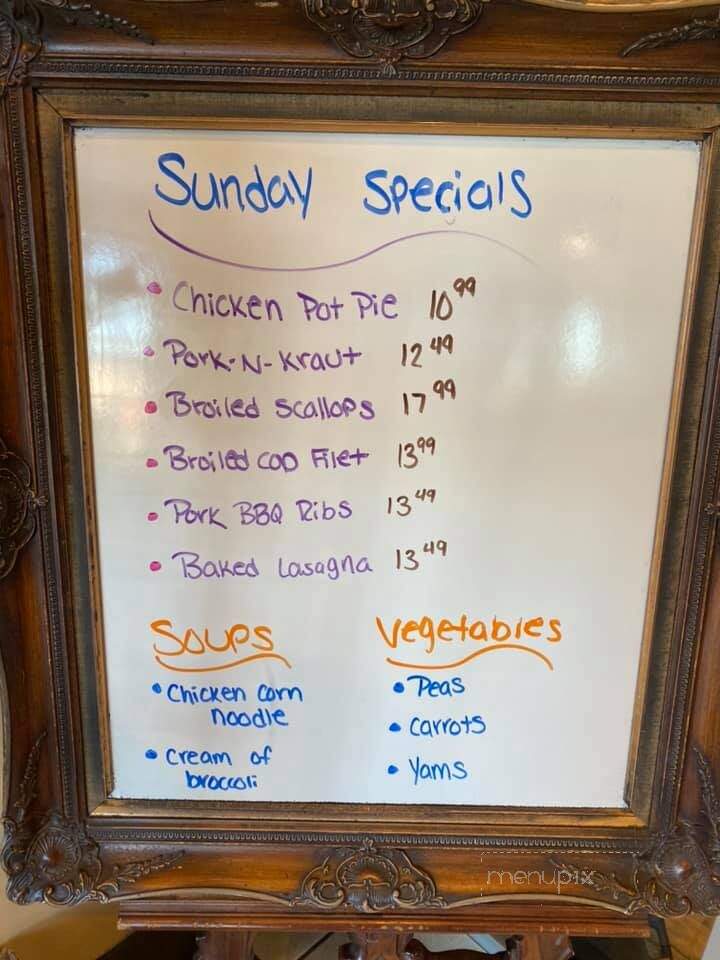 Sunday Specials
• Chicken Pot Pie 10 99
• Pork-N-Kraut 12 49
• Broiled Scallops 17 99
• Broiled COD Filet 13 99
• Pork BBQ Ribs 13 49
• Baked Lasagna 13 49
Soups
• Chicken corn
noodle
• Cream of
broccoli
Vegetables
• Peas
• Carrots
• Yams
menupix